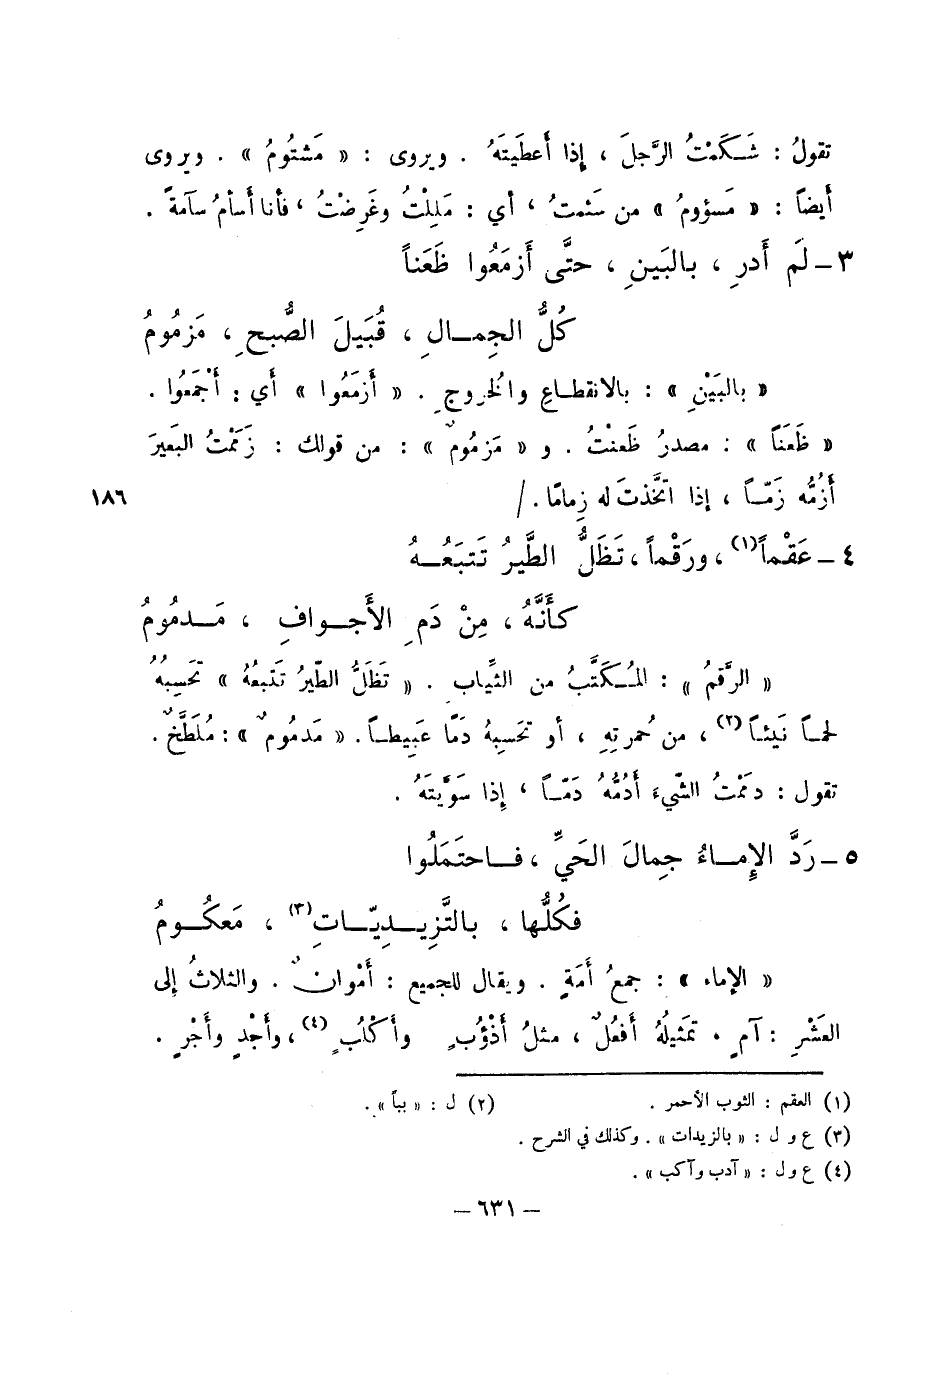 تقولُ : شَـكَمْتُ الرَّجلَ ، إذا أَعطَيتَهُ . ويروى : « مَشتُومُ » . ويروى
أيضاً : « مَسؤومُ » من سَئمتُ ، أي : مَلِلْتُ وغَرِضْتُ ، فأنا أَسأمُ سآمةً .
٣ – لَم أَدرِ ، بالبَينِ ، حتَّى أَزمَعُوا ظَعَناً
كُلُّ الجِمـالِ ، قُبَيلَ الصُّبحِ ، مَزمُومُ
« بالبَيْنِ » : بالانقطـاعِ والخُروجِ . « أَزمَعُوا » أَي : أَجْمَعُوا .
« ظَعَنَاً » : مصدرُ ظَعنْتُ . و « مَزمُومٌ » : من قولك : زَمَمْتُ البَعيرَ
أَزُمُّه زَمّـاً ، إذا اتخَّذتَ له زِمامًا . /
١٨٦
٤ – عَقْماً(١) ، ورَقْماً ، تَظَلُّ الطَّيرُ تَتبَعُـهُ
كأَنَّهُ ، مِنْ دَمِ الأَجـوافِ ، مَـدمُومُ
« الرَّقمُ » : المُـكَتَّبُ من الثِّياب . « تَظَلُّ الطَّيرُ تَتبعُهُ » تحَسِبُهُ
لحمـاً نَيئـاً(٢) ، من حُمرتِهِ ، أو تحَسِبهُ دَمًا عَبِيطـاً . « مَدمُومٌ » : مُلَطَّخٌ .
تقول : دممْتُ الشّيءَ أَدُمُّهُ دَمّـاً ، إِذا سَوَّيتَهُ .
٥ – رَدَّ الإِمـاءُ جِمالَ الحَيِّ ، فـاحتَمَلُوا
فكُلُّها ، بالتَّزِيـدِيّـاتِ(٣) ، مَعكُـومُ
« الإماء » : جمعُ أَمَةٍ . ويقال للجميع : أَمْوانٌ . والثلاثُ إلى
العَشْرِ : آمٍ . تمَثيلُهُ أَفعُلٌ ، مثلُ أَذْؤُبٍ وأَكْلُبٍ (٤) ، وأَجْدٍ وأَجْرٍ .
(١) العقم : الثوب الأحمر . (٢) ل : « بياً » .
(٣) ع و ل : « بالزيدات » . وكذلك في الشرح .
(٤) ع و ل : « آدب وآكب » .
– ٦٣١ –